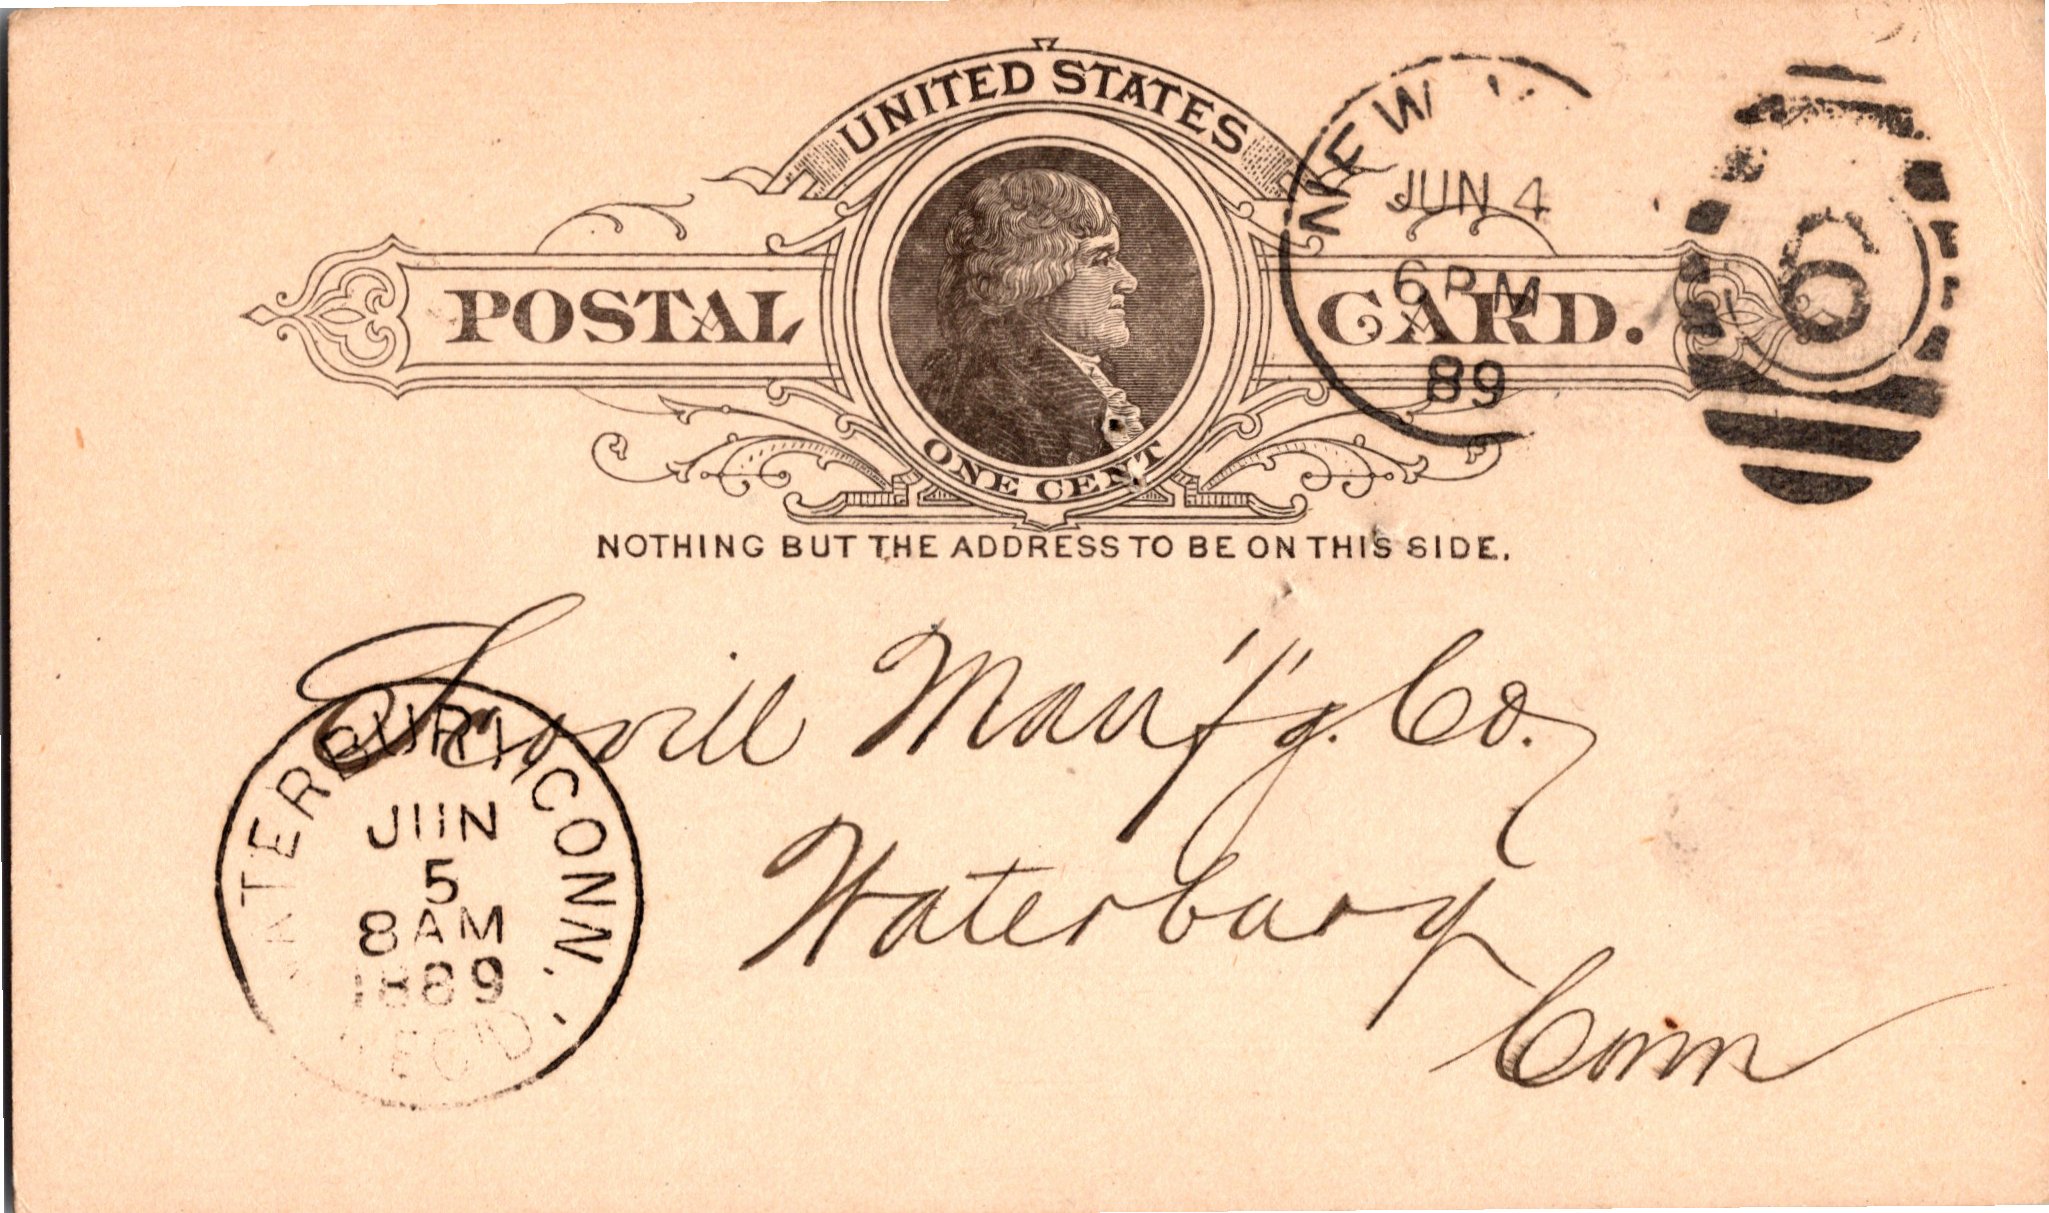 UNITED STATES
POSTAL CARD.
ONE CENT
NOTHING BUT THE ADDRESS TO BE ON THIS SIDE.
NEW
JUN 4
6 PM
89
6
Scovill Manf'g. Co.
Waterbury
Conn
WATERBURY CONN.
JUN
5
8 AM
1889
REC'D